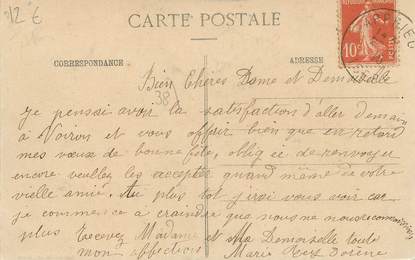 12 €
CARTE POSTALE
CORRESPONDANCE
ADRESSE
10c
Bien Chères Dame et Demoiselle
38
Je pensai avoir la satisfaction d'aller demain
à Voiron et vous offrir bien que en retard
mes vœux de bonne fête, obligée de renvoyer
encore veuillez les accepter quand même de votre
vielle amie. Au plus tot j'irai vous voir car
je commence a craindre que nous ne nous
plus Recevez Madame et Ma Demoiselle toute
mon affection Marie